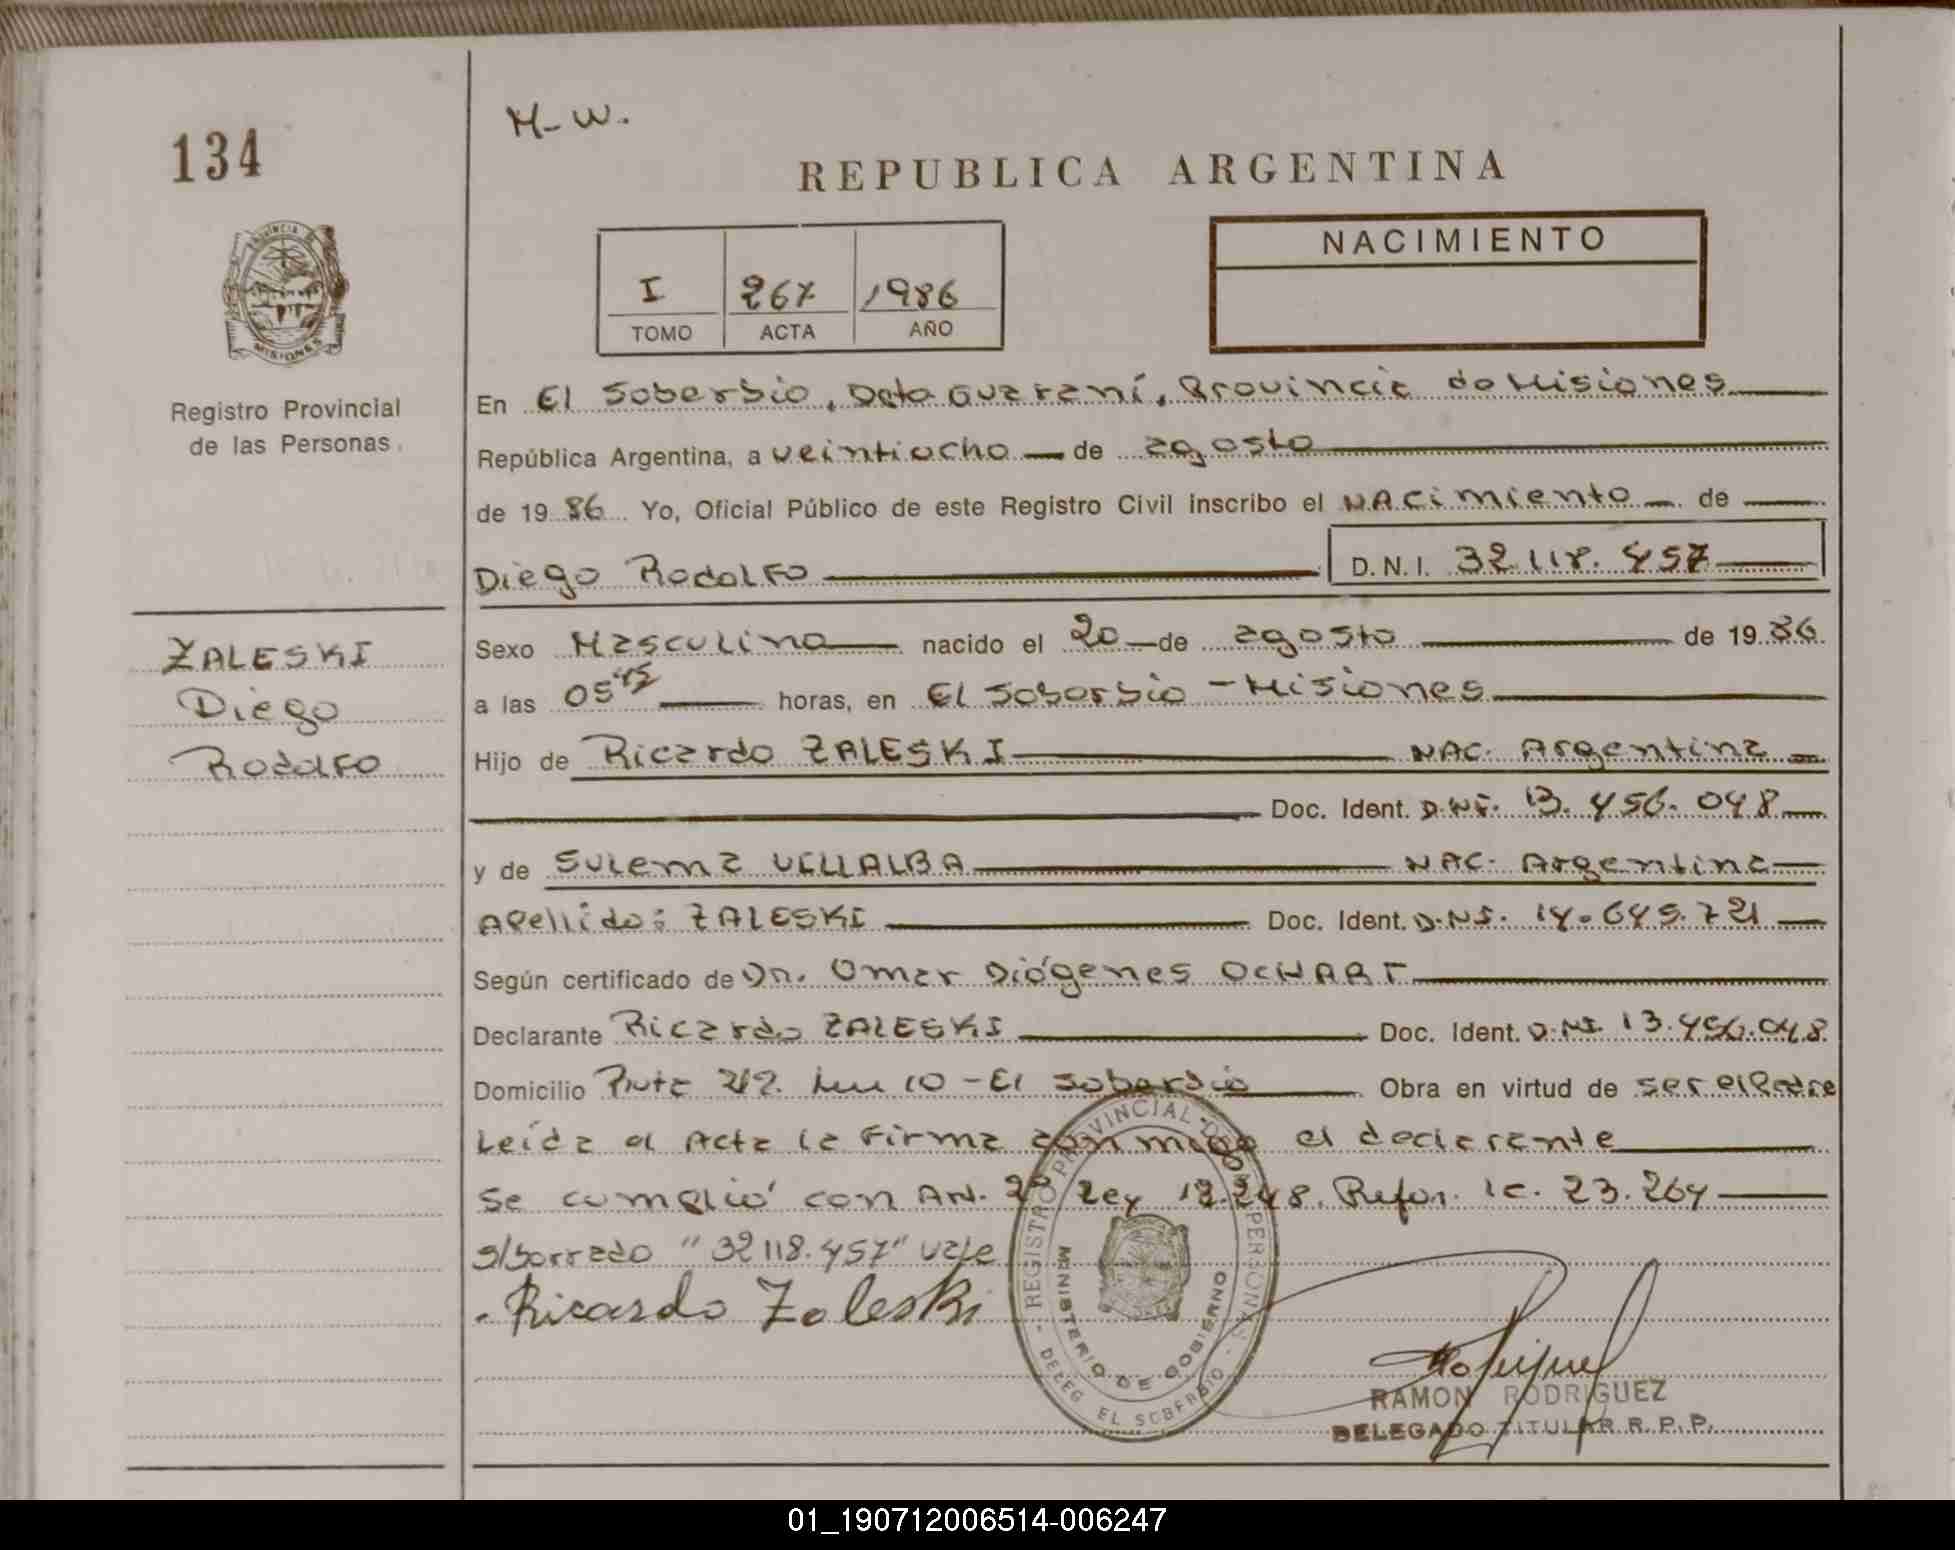 134
M-W.
REPUBLICA ARGENTINA
PROVINCIA DE
MISIONES
I 267 1986
TOMO ACTA AÑO
NACIMIENTO
Registro Provincial
de las Personas.
En El Soberbio, Dpto Guaraní, Provincia de Misiones
República Argentina, a veintiocho de agosto
de 1986 Yo, Oficial Público de este Registro Civil inscribo el NACimiento de
Diego RodolFo D.N.I. 32.118.457
ZALESKI
Diego
RodolFo
Sexo Masculino nacido el 20 de agosto de 1986
a las 05 45 horas, en El Soberbio - Misiones
Hijo de Ricardo ZALESKI NAC. Argentina
Doc. Ident. D.NI. 13.456.048
y de Sulema VILLALBA NAC. Argentina
Apellido: ZALESKI Doc. Ident. D.NI. 14.645.721
Según certificado de Dr. Omar Diógenes OCHART
Declarante Ricardo ZALESKI Doc. Ident. D.NI. 13.456.048
Domicilio Ruta 212 km 10 - El Soberbio Obra en virtud de ser el Padre
Leída el Acta la Firma conmigo el declarante
se cumplió con Art. 2º Ley 18.248. Refor. 23.264
s/borrado "32118.457" vale
Ricardo Zaleski
REGISTRO PROVINCIAL DE PERSONAS
MINISTERIO DE GOBIERNO
DELEG EL SOBERBIO
RAMON RODRIGUEZ
DELEGADO TITULAR R.P.P.
01_190712006514-006247